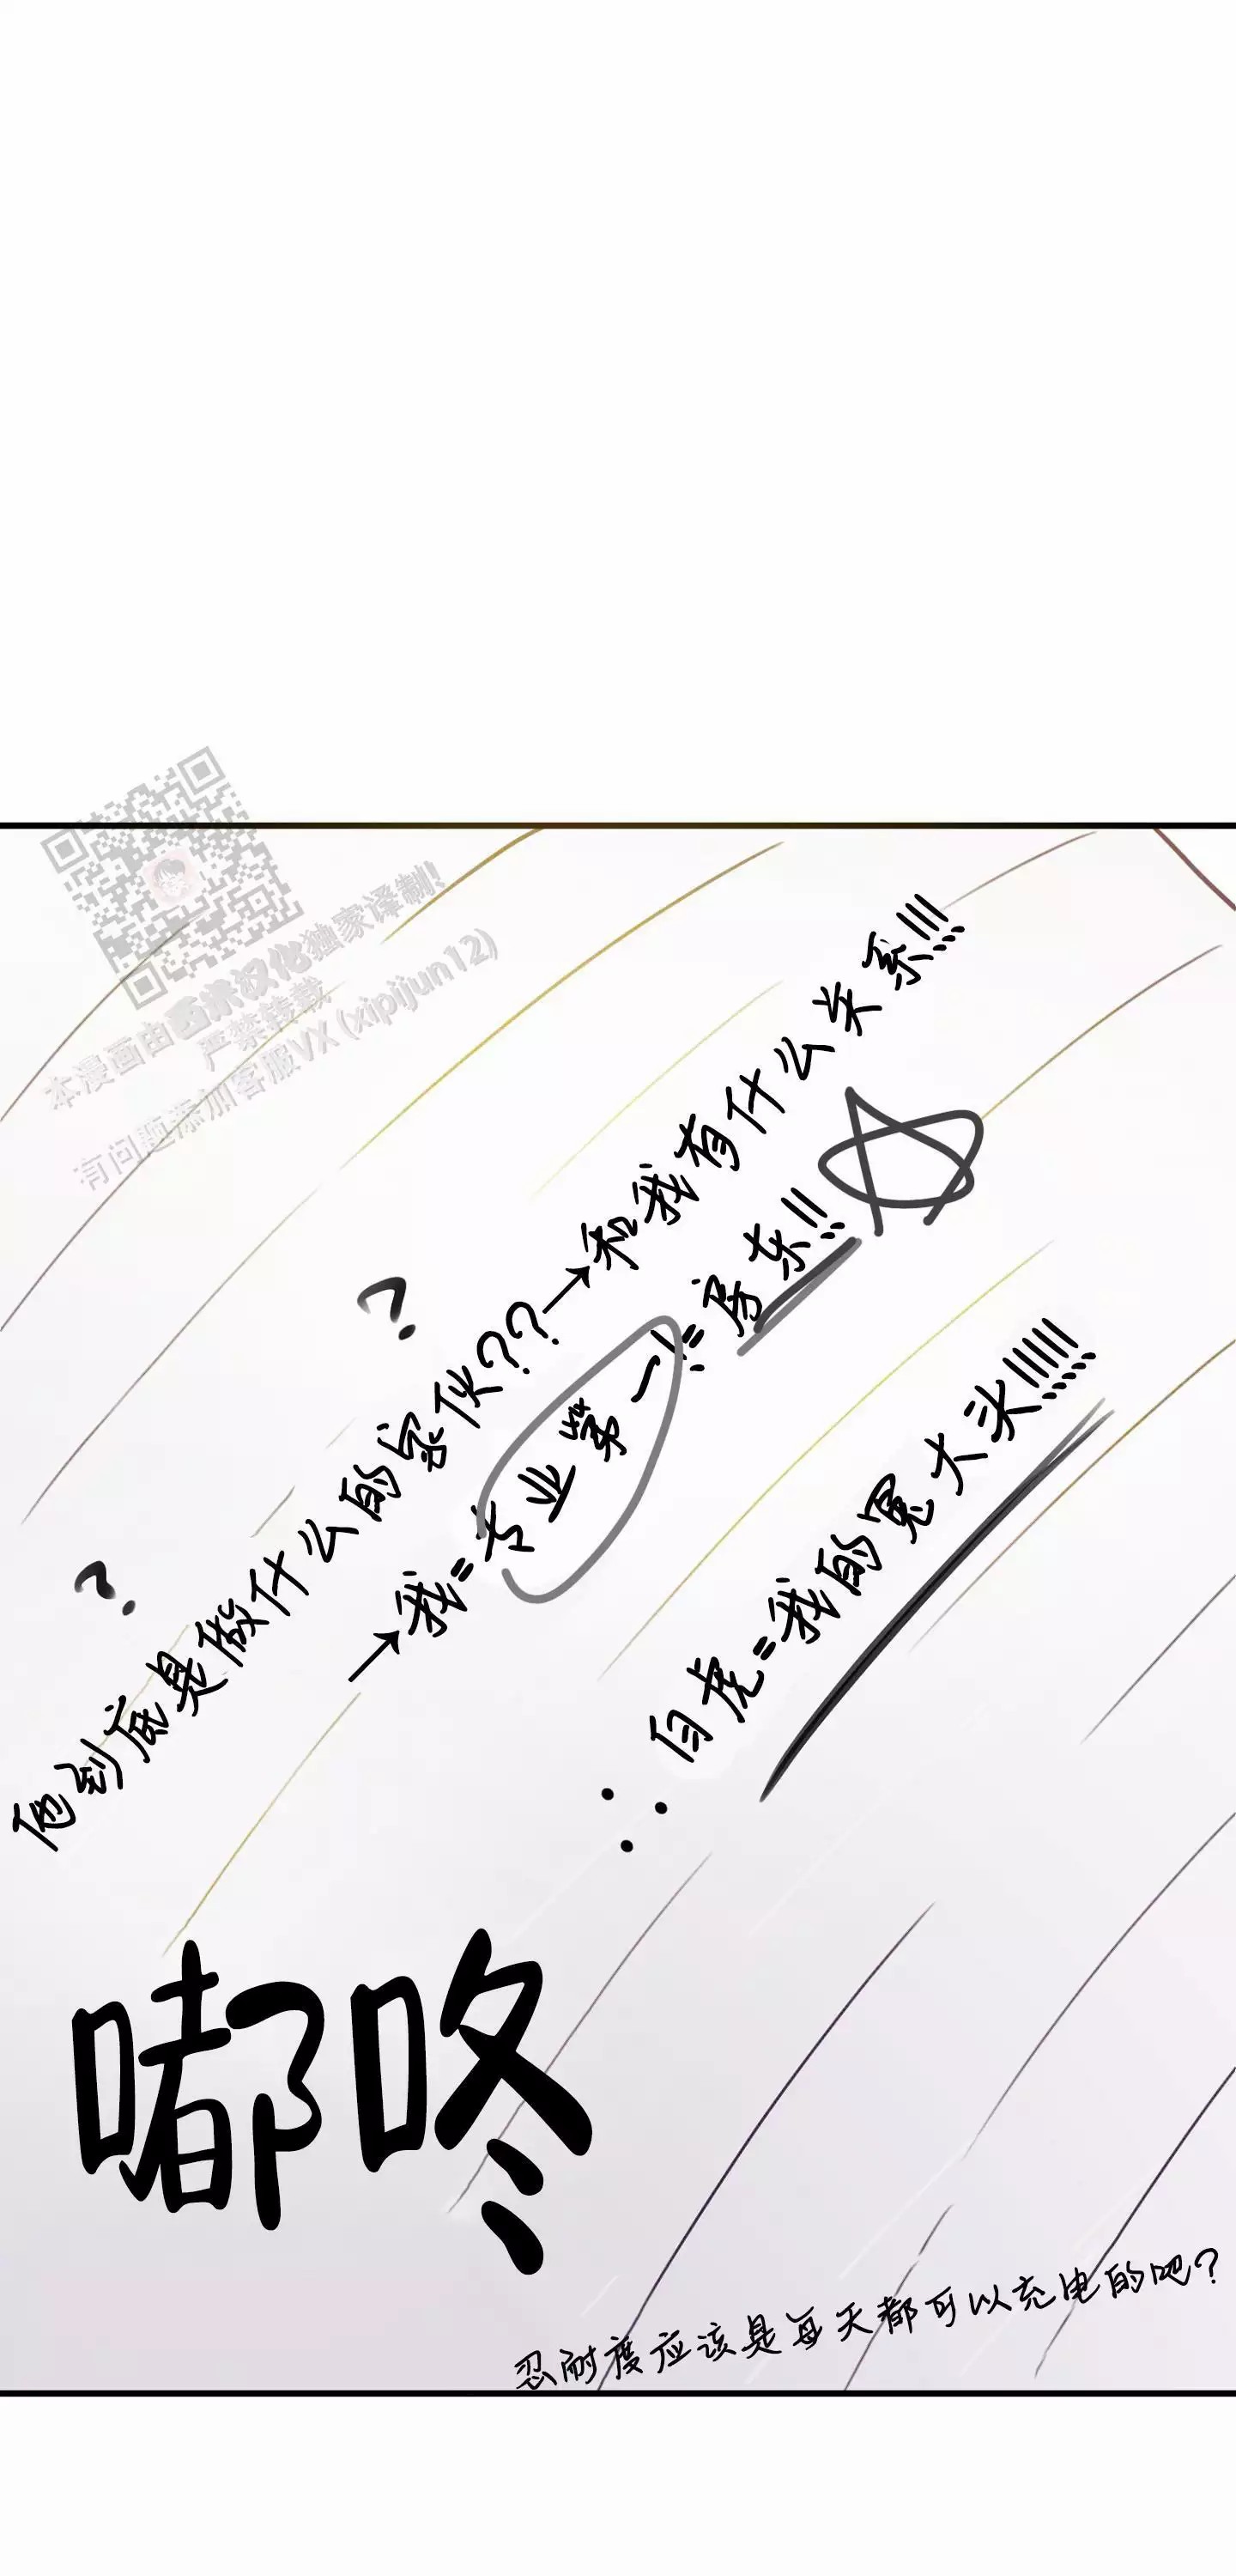 本漫画由西米汉化独家译制!
严禁转载
有问题添加客服VX(xipijun12)
他到底是做什么的家伙??→和我有什么关系!!!!
?
?
→我=专业第一!=房东!!!
∴白虎=我的冤大头!!!!!
嘟咚
忍耐度应该是每天都可以充电的吧?